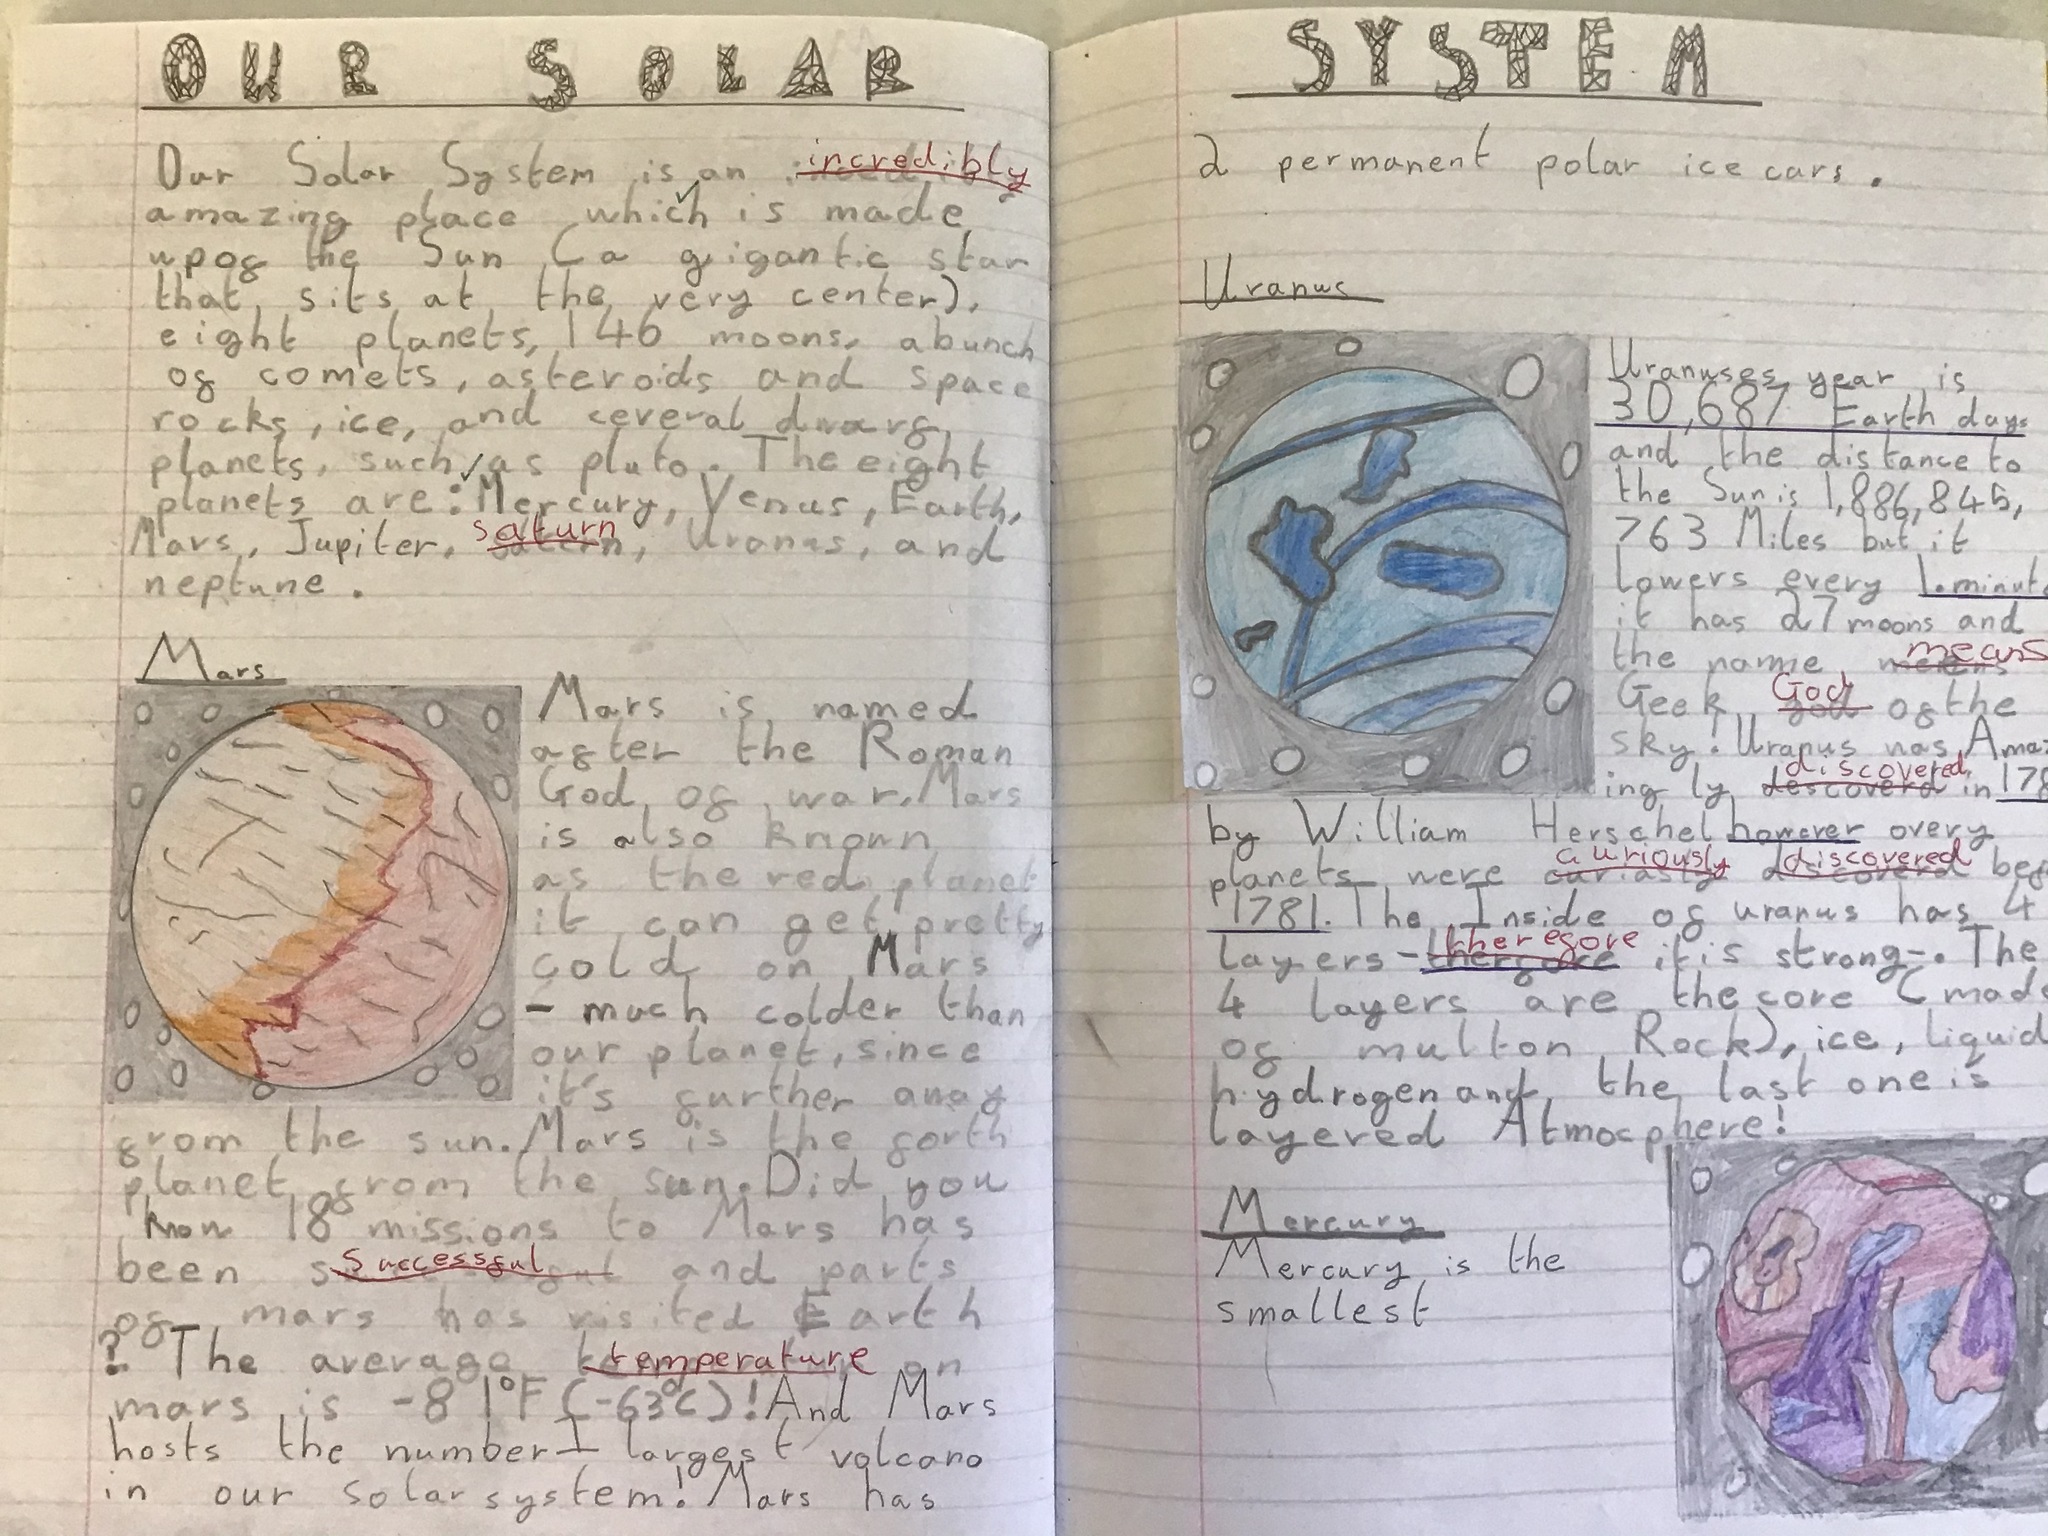 OUR SOLAR
Our Solar System is an incredibly
amazing place which is made
upof the Sun (a gigantic star
that sits at the very center),
eight planets, 146 moons, abunch
of comets, asteroids and space
rocks, ice, and ceveral dwarf
planets, such as pluto. The eight
planets are: Mercury, Venus, Earth,
Mars, Jupiter, saturn, Uranus, and
neptune.
Mars
Mars is named
after the Roman
God of war. Mars
is also known
as the red planet
it can get pretty
cold on Mars
- much colder than
our planet, since
it's further away
from the sun. Mars is the forth
planet from the sun. Did you
know 18 missions to Mars has
been successful and parts
of mars has visited Earth
? The average temperature on
mars is -81°F (-63°C)! And Mars
hosts the number 1 largest volcano
in our solar system! Mars has
SYSTEM
2 permanent polar ice cars.
Uranus
Uranuses year is
30,687 Earth days
and the distance to
the Sun is 1,886,845,
763 Miles but it
lowers every 1 minut
it has 27 moons and
the name means
Geek God of the
sky! Uranus was Amaz
ing ly descoverd discovered in 178
by William Herschel however overy
planets were auriously discovered
1781. The Inside of uranus has 4
layers - therefore it is strong-. The
4 layers are the core (made
of multon Rock), ice, liquid
hydrogen and the last one is
layered Atmocphere!
Mercury
Mercury is the
smallest